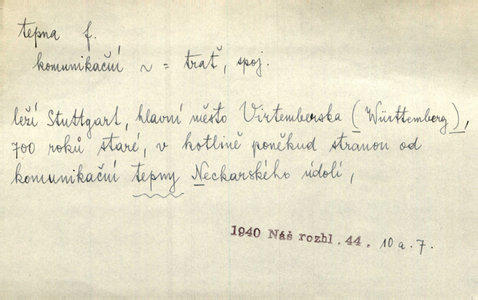 tepna f.
komunikační ~ = trať, spoj.
leží Stuttgart, hlavní město Virtemberska (Württemberg),
700 roků staré, v kotlině poněkud stranou od
komunikační tepny Neckarského údolí,
1940 Náš rozhl. 44. 10 a. 7.